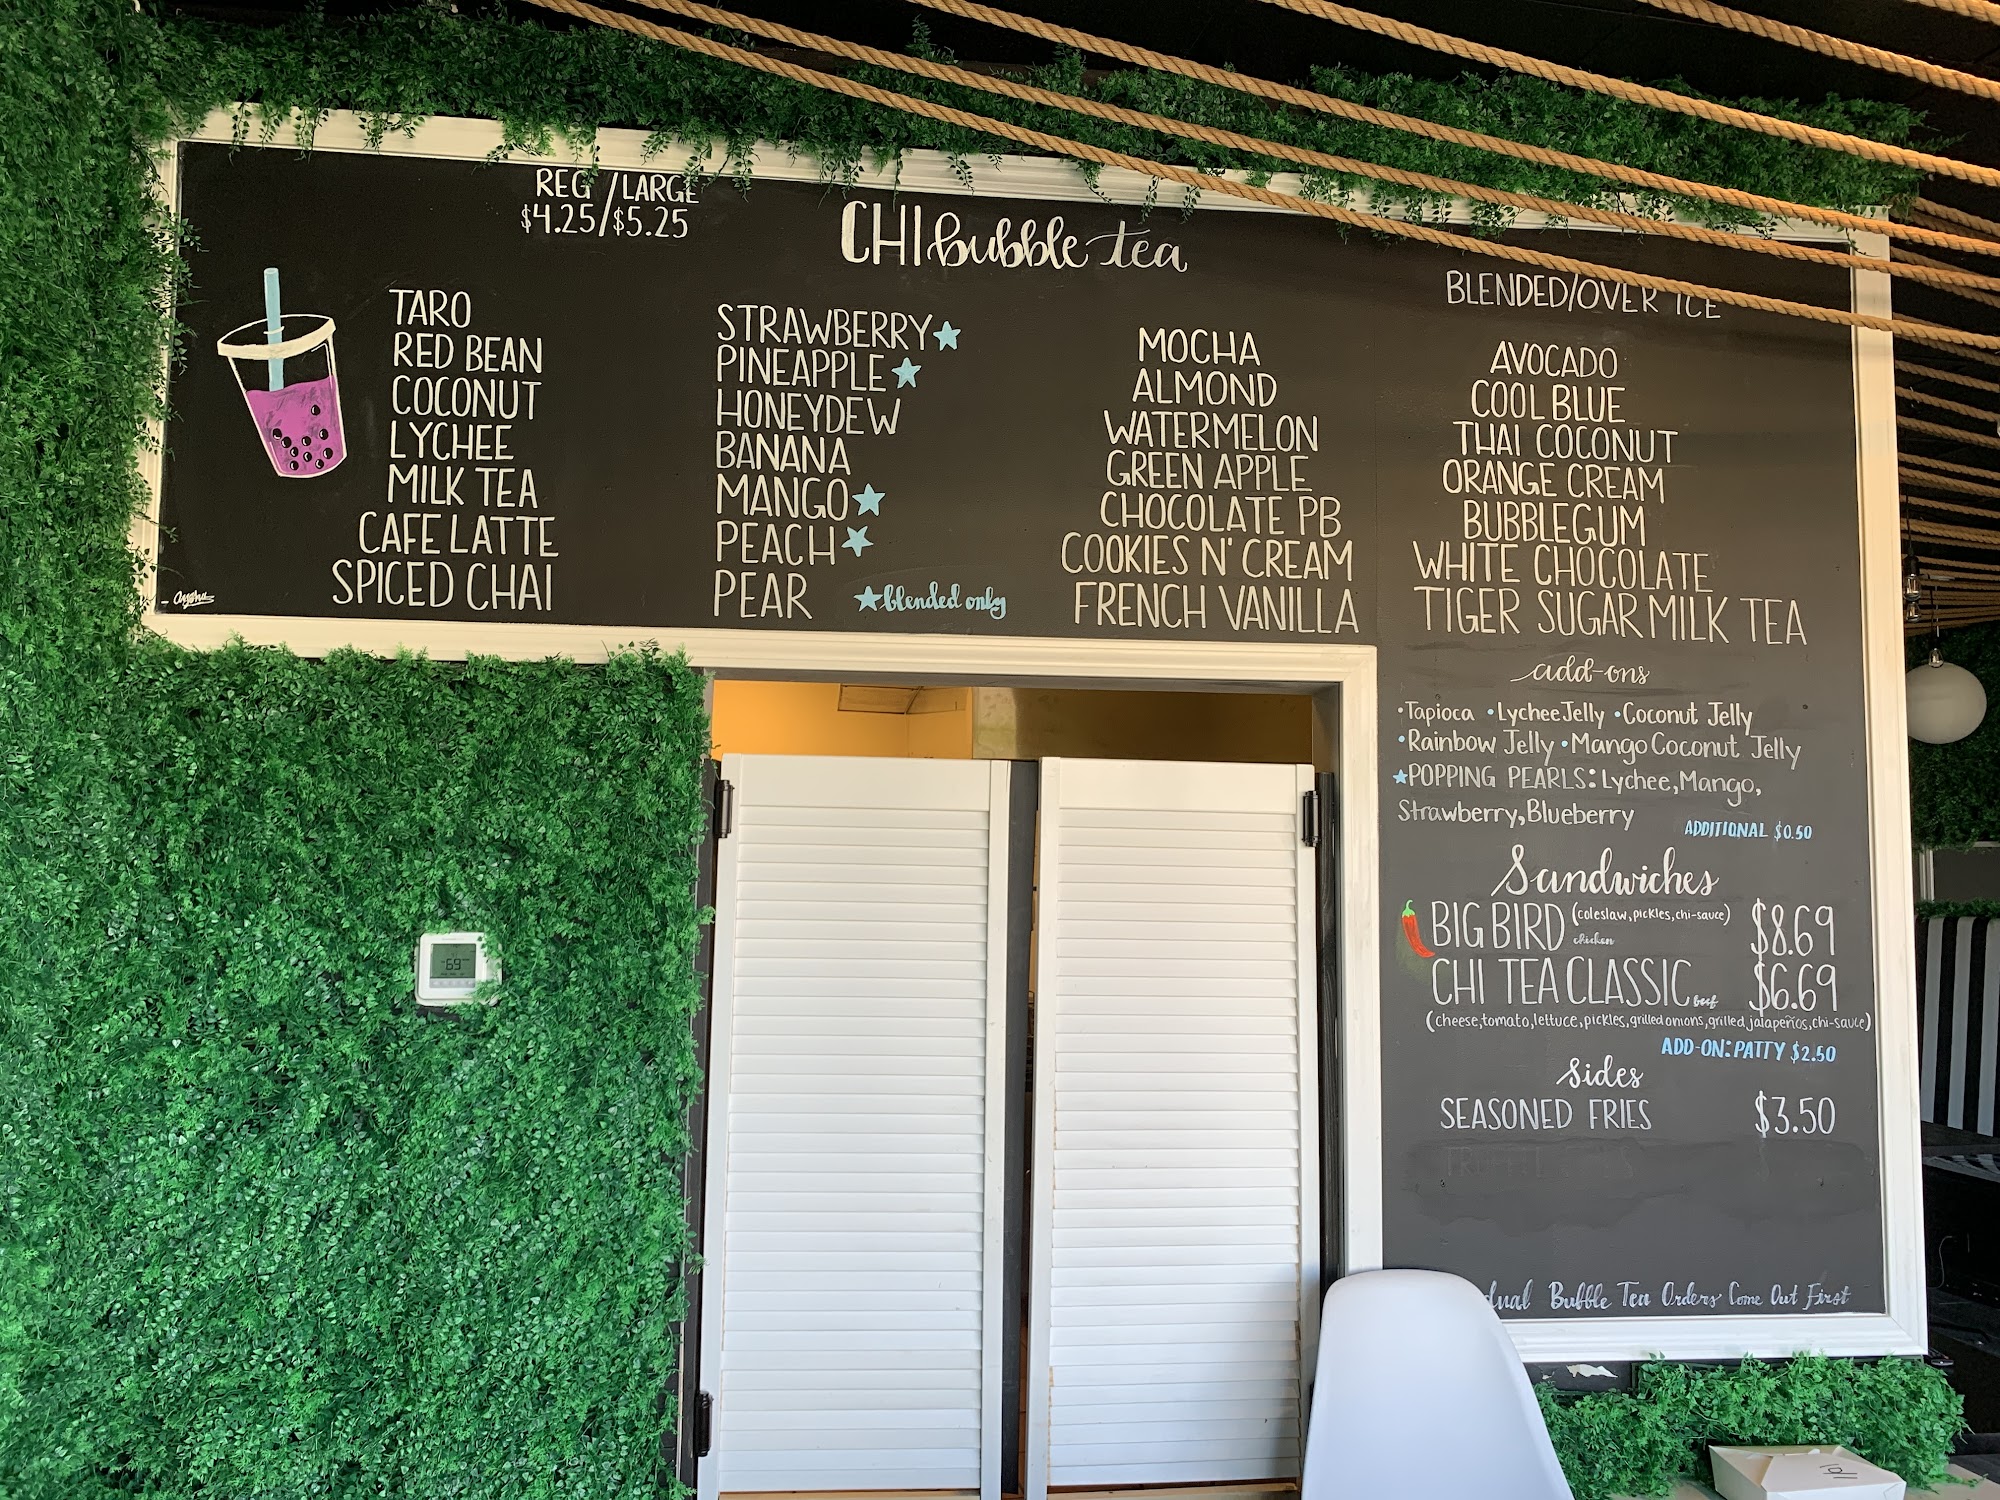 REG / LARGE
$4.25/$5.25
CHI bubble tea
TARO
RED BEAN
COCONUT
LYCHEE
MILK TEA
CAFE LATTE
SPICED CHAI
STRAWBERRY★
PINEAPPLE★
HONEYDEW
BANANA
MANGO★
PEACH★
PEAR
★blended only
MOCHA
ALMOND
WATERMELON
GREEN APPLE
CHOCOLATE PB
COOKIES N' CREAM
FRENCH VANILLA
BLENDED/OVER ICE
AVOCADO
COOL BLUE
THAI COCONUT
ORANGE CREAM
BUBBLEGUM
WHITE CHOCOLATE
TIGER SUGAR MILK TEA
add-ons
•Tapioca •Lychee Jelly •Coconut Jelly
•Rainbow Jelly •Mango Coconut Jelly
★POPPING PEARLS: Lychee, Mango,
Strawberry, Blueberry
ADDITIONAL $0.50
Sandwiches
BIG BIRD (coleslaw, pickles, chi-sauce) $8.69
chicken
CHI TEA CLASSIC beef $6.69
(cheese, tomato, lettuce, pickles, grilled onions, grilled jalapeños, chi-sauce)
ADD-ON: PATTY $2.50
Sides
SEASONED FRIES $3.50
Bubble Tea Orders Come Out First
69
101